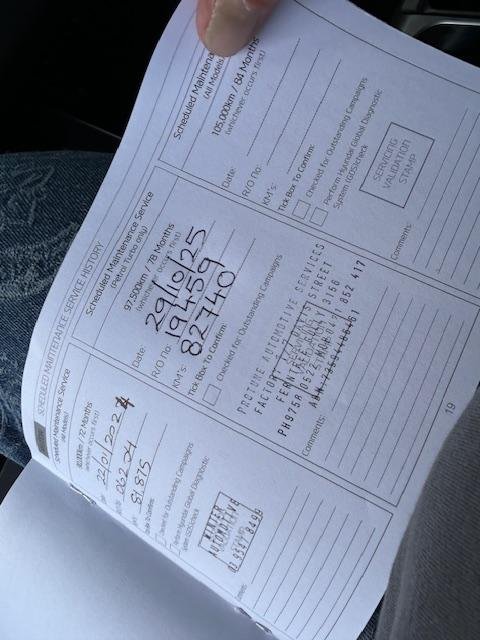 SCHEDULED MAINTENANCE SERVICE HISTORY
Scheduled Maintenance Service
(All Models)
90,000km / 72 Months
(whichever occurs first)
Date: 22/01/2024
062
KM's: 81,815
Tick Box To Confirm:
Checked for Outstanding Campaigns
Perform Hyundai Global Diagnostic
System (GDS)check
AUTOMOTIVE
Comments:
Scheduled Maintenance Service
(Petrol Turbo only)
97,500km / 78 Months
(whichever occurs first)
Date: 29/10/25
R/O No: 19459
KM's: 82740
Tick Box To Confirm:
Checked for Outstanding Campaigns
PROTUNE AUTOMOTIVE SERVICES
STREET
3156
Comments:
19
Scheduled Maintena
(All Models)
105,000km / 84 Months
(whichever occurs first)
Date:
R/O No:
KM's:
Tick Box To Confirm:
Checked for Outstanding Campaigns
Perform Hyundai Global Diagnostic
System (GDS)check
SERVICING
VALIDATION
STAMP
Comments: